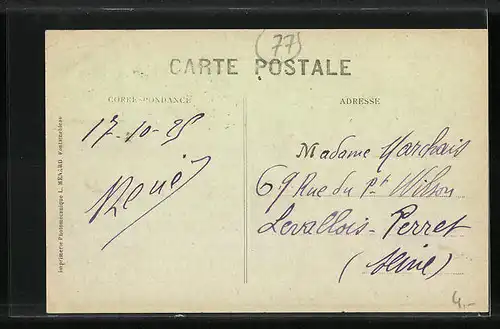 77
CARTE POSTALE
CORRESPONDANCE
ADRESSE
17-10-25
René
Madame Marchais
69 Rue du Pt Wilson
Levallois-Perret
(Seine)
Imprimerie Photomécanique L. MENARD Fontainebleau
4.-